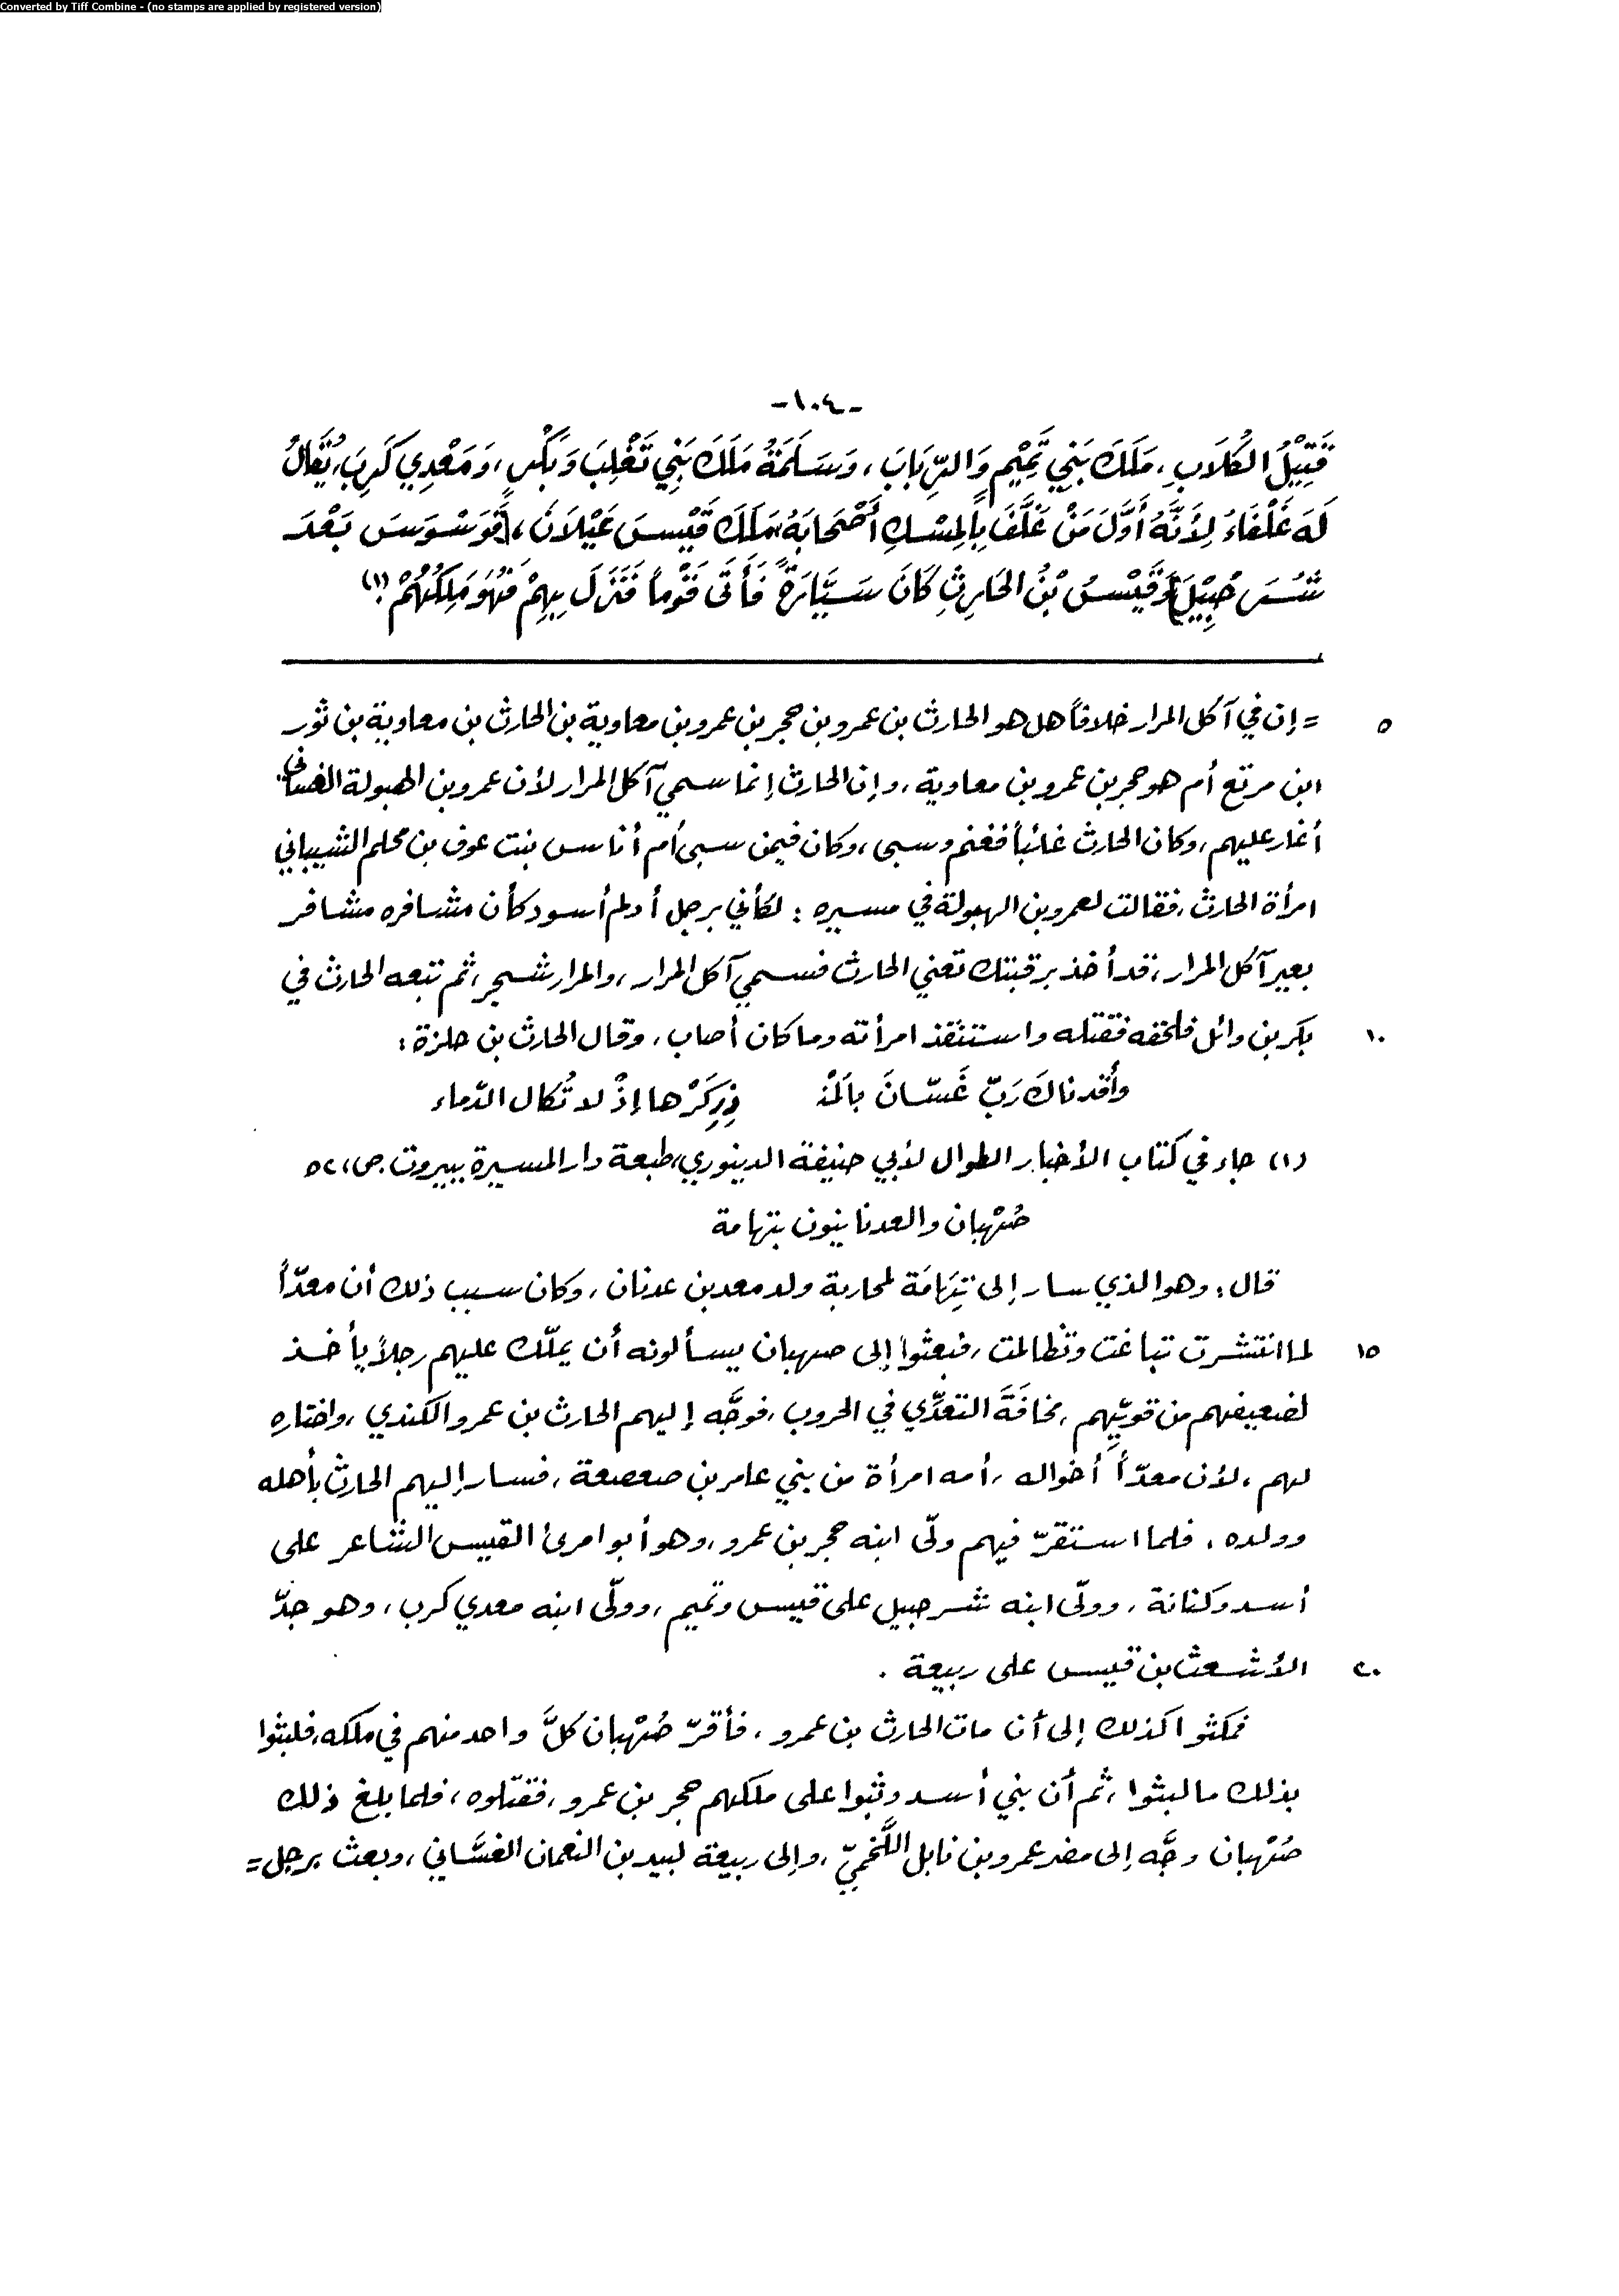 Converted by Tiff Combine - (no stamps are applied by registered version)
-١٠٤-
قَتِيْلُ الكُلَابِ، مَلَكَ بَنِي تَمِيْمٍ وَالرِّبَابَ، وَسَلَمَةُ مَلَكَ بَنِي تَغْلِبَ وَبَكْرٍ، وَمَعْدِي كَرِبَ، يُقَالُ
لَهَ غَلْفَاءُ لِأَنَّهُ أَوَّلَ مَنْ غَلَّفَ بِالمِسْكِ أَصْحَابَهُ، مَلَكَ قَيْسَ عَيْلَانَ، [وَ]قَوَسْوَسَ بَعْدَ
شُرَحْبِيْلَ] وَقَيْسُ بْنُ الحَارِثِ كَانَ سَيَّارَةً فَأَتَى قَوْماً فَنَزَلَ بِهِمْ فَهُوَ مَلِكُهُمْ.(١)
٥ = إن في آكل المرار خلافاً هل هو الحارث بن عمرو بن حجر بن عمرو بن معاوية بن الحارث بن معاوية بن ثور
ابن مرتع أم هو حجر بن عمرو بن معاوية، وإن الحارث إنما سمي آكل المرار لأن عمرو بن الهبولة الغساني
أغار عليهم، وكان الحارث غائباً فغنم وسبى، وكان فيمن سبى أم أناس بنت عوف بن محلم الشيباني
امرأة الحارث، فقالت لعمرو بن الهبولة في مسيره : لكأني برجل أدلم أسود كأن مشافره مشافر
بعير آكل المرار، قد أخذ برقبتك تعني الحارث فسمي آكل المرار، والمرار شجر، ثم تتبعه الحارث في
١٠ بكر بن وائل فلحقه فقتله واستنقذ امرأته وما كان أصاب، وقال الحارث بن حلزة :
وأقدناكَ رَبّ غَسّانَ بالمُنْ ذِرِكَرْها إذْ لا تُكال الدّماء
(١) جاء في كتاب الأخبار الطوال لأبي حنيفة الدينوري، طبعة دار المسيرة ببيروت. ص، ٥٢
صُهْبان والعدنانيون بتهامة
قال : وهو الذي سار إلى تِهَامَة لمحاربة ولد معد بن عدنان، وكان سبب ذلك أن معدّاً
١٥ لما انتشرت تباغت وتظالمت، فبعثوا إلى صهبان يسألونه أن يملّك عليهم رجلاً يأخذ
لضعيفهم من قويِّهم، مخافَةَ التعدِّي في الحروب، فوجَّه إليهم الحارث بن عمرو الكندي، واختاره
لهم، لأن معدّاً أخواله، أمه امرأة من بني عامر بن صعصعة، فسار إليهم الحارث بأهله
وولده، فلما استقرّ فيهم ولّى ابنه حجر بن عمرو، وهو أبو امرئ القيس الشاعر على
أسد وكنانة، وولّى ابنه شرحبيل على قيس وتميم، وولّى ابنه معدي كرب، وهو جدّ
٢٠ الأشعث بن قيس على ربيعة .
فمكثوا كذلك إلى أن مات الحارث بن عمرو، فأقرّ صُهْبان كلَّ واحد منهم في ملكه، فلبثوا
بذلك ما لبثوا، ثم أن بني أسد وثبوا على ملكهم حجر بن عمرو، فقتلوه، فلما بلغ ذلك
صُهْبان وجَّه إلى مضر عمرو بن نابل اللَّخميّ، وإلى ربيعة لبيد بن النعمان الغسَّاني، وبعث برجل =